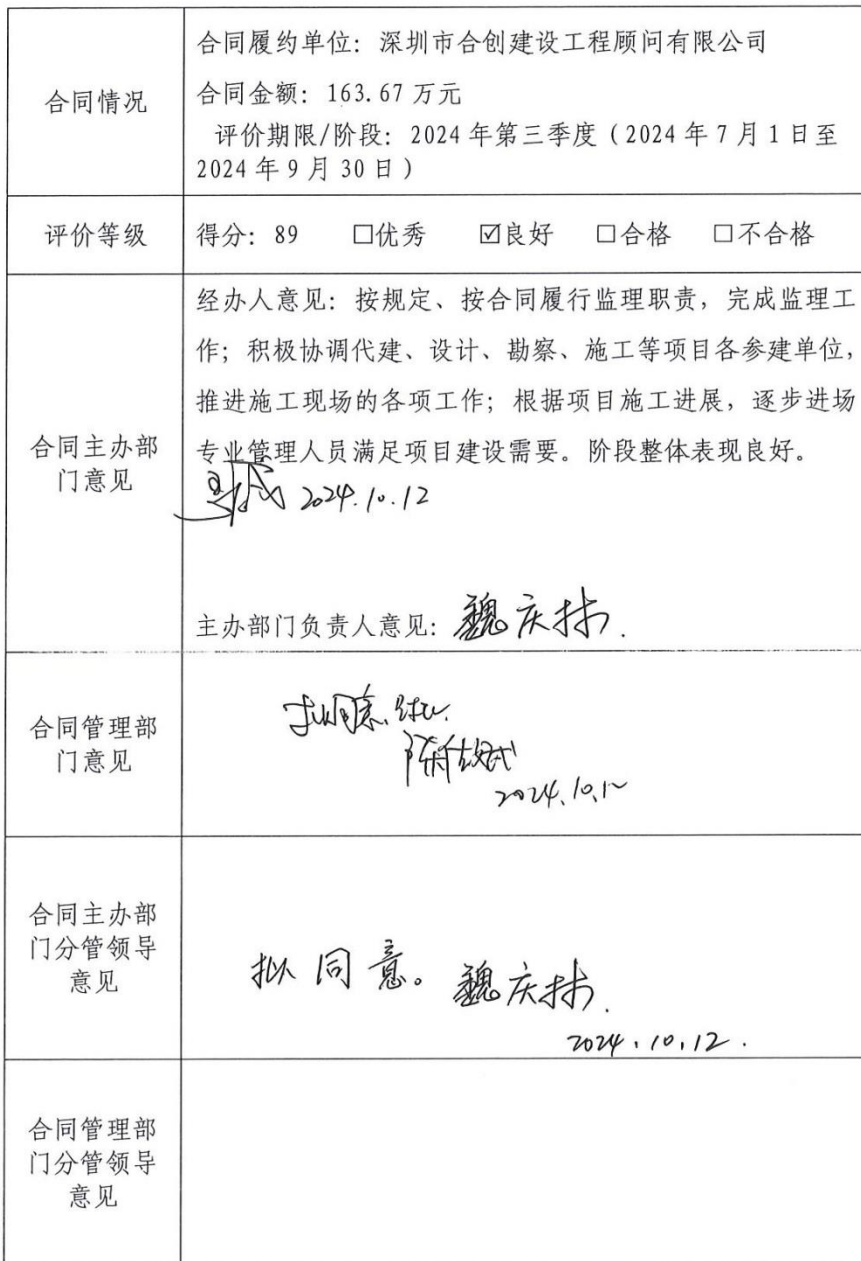 合同情况
合同履约单位：深圳市合创建设工程顾问有限公司
合同金额：163.67 万元
评价期限/阶段：2024 年第三季度（2024 年 7 月 1 日至
2024 年 9 月 30 日）
评价等级
得分：89 □优秀 ☑良好 □合格 □不合格
合同主办部
门意见
经办人意见：按规定、按合同履行监理职责，完成监理工
作；积极协调代建、设计、勘察、施工等项目各参建单位，
推进施工现场的各项工作；根据项目施工进展，逐步进场
专业管理人员满足项目建设需要。阶段整体表现良好。
2024.10.12
主办部门负责人意见：魏庆
合同管理部
门意见
拟同意
2024.10.12
合同主办部
门分管领导
意见
拟同意。魏庆
2024.10.12.
合同管理部
门分管领导
意见